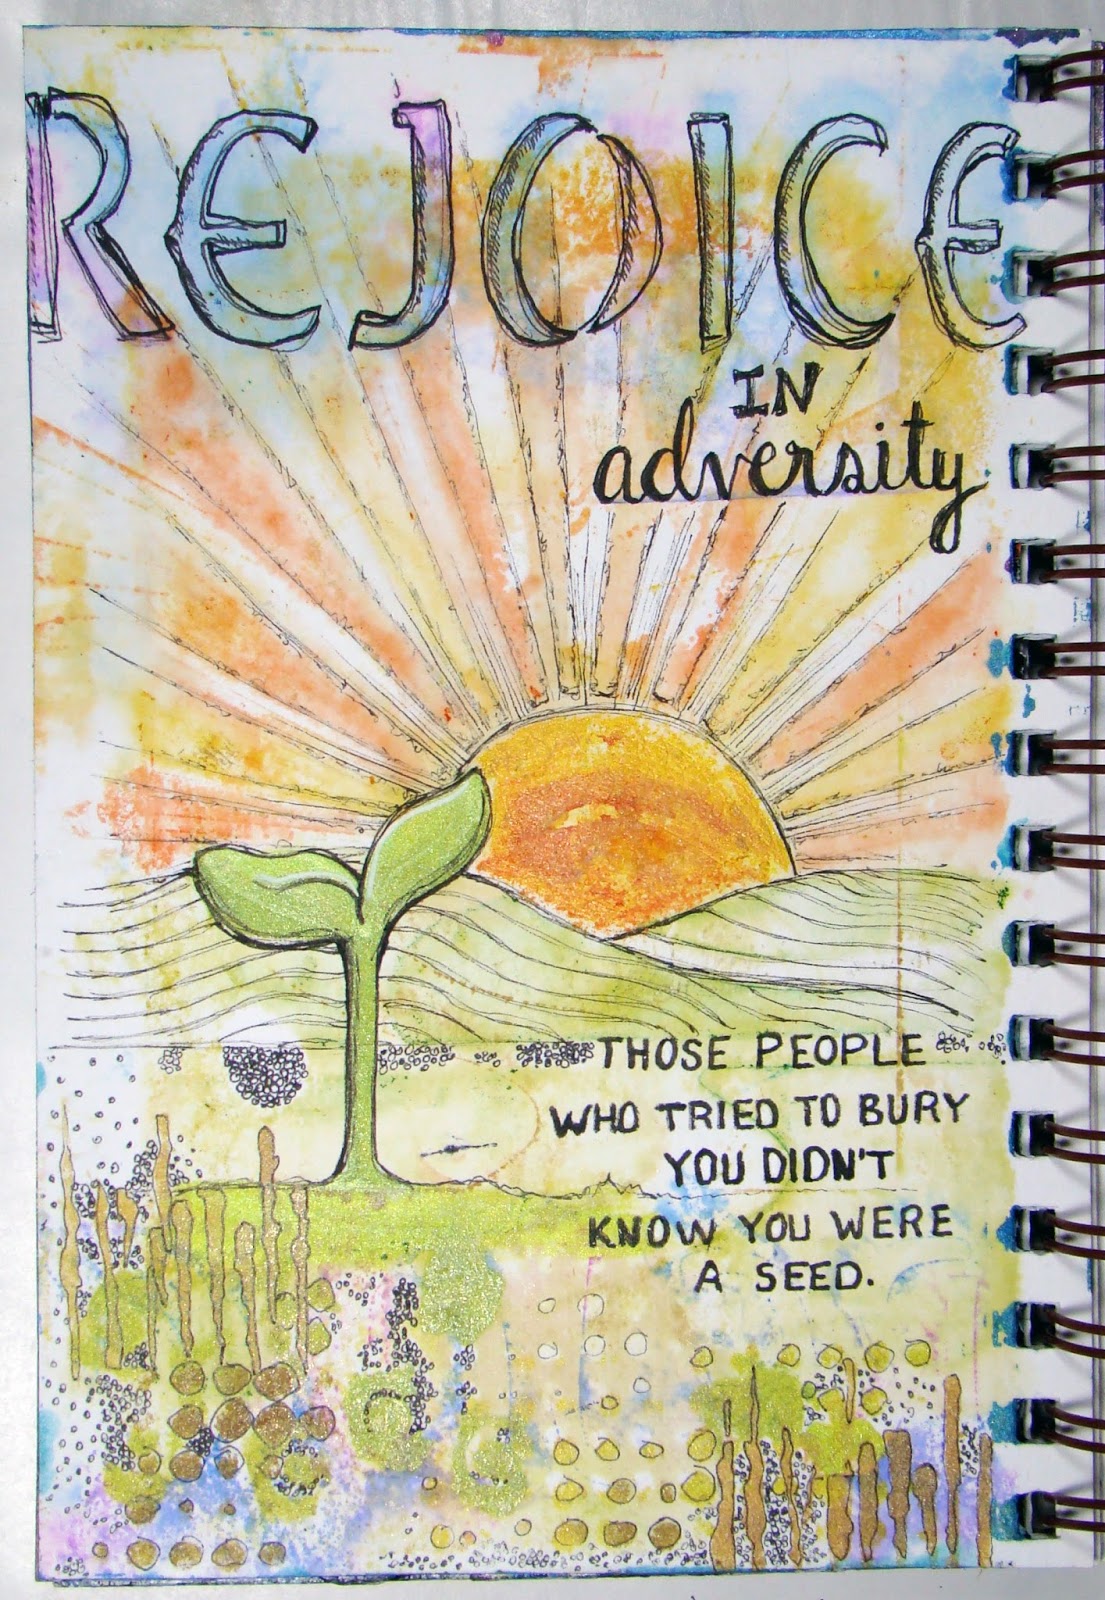 REJOICE
IN
adversity
THOSE PEOPLE
WHO TRIED TO BURY
YOU DIDN'T
KNOW YOU WERE
A SEED.